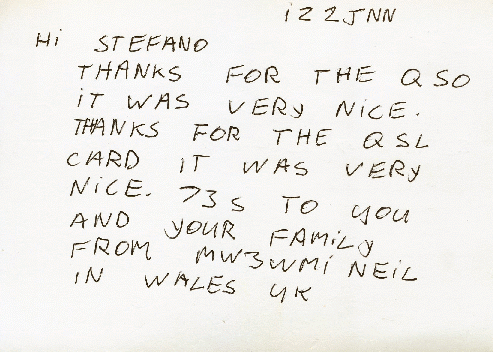 i22JNN
Hi STEFANO
THANKS FOR THE QSO
iT WAS VERY NiCE.
THANKS FOR THE QSL
CARD IT WAS VERY
NiCE. 73s TO YOU
AND YOUR FAMiLY
FROM MW3WMi NEiL
IN WALES UK